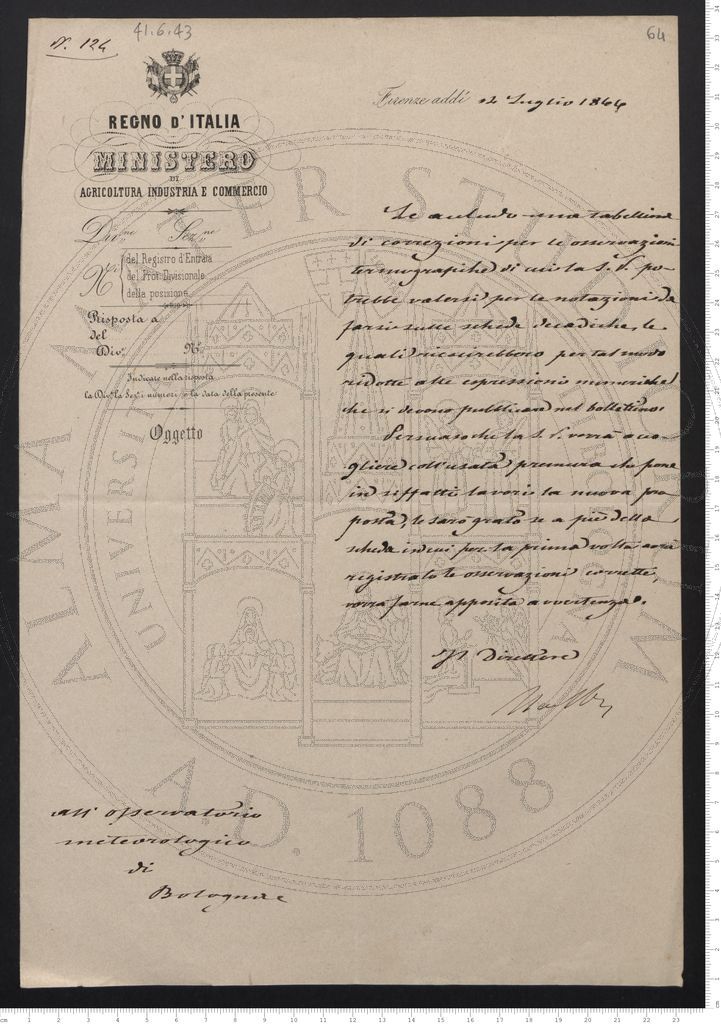 N. 124
41.6.43
64
REGNO D'ITALIA
MINISTERO
DI
AGRICOLTURA INDUSTRIA E COMMERCIO
Div.ne Sez.ne
N.i
del Registro d'Entrata
del Prot. Divisionale
della posizione
Risposta a
del
Div.e N.o
Indicare nella risposta
la Div.e la Sez.e i numeri e la data della presente
Oggetto
Firenze addì 12 Luglio 1866
Le accludo una tabellina
di correzioni per le osservazioni
termografiche di cui la S. V. po-
trebbe valersi per le notazioni da
farsi sulle schede decadiche, le
quali riescirebbero per tal modo
ridotte alle espressioni numeriche
che si devono pubblicare nel bollettino.
Persuaso che la S. V. vorrà acco-
gliere coll'usata premura che pone
in siffatti lavori la nuova pro-
posta, le sarò grato se a piè della
scheda in cui per la prima volta avrà
registrato le osservazioni corrette,
vorrà farne apposita avvertenza.
Il Direttore
all'osservatorio
meteorologico
di
Bologna
ALMA MATER STUDIORUM
A.D. 1088